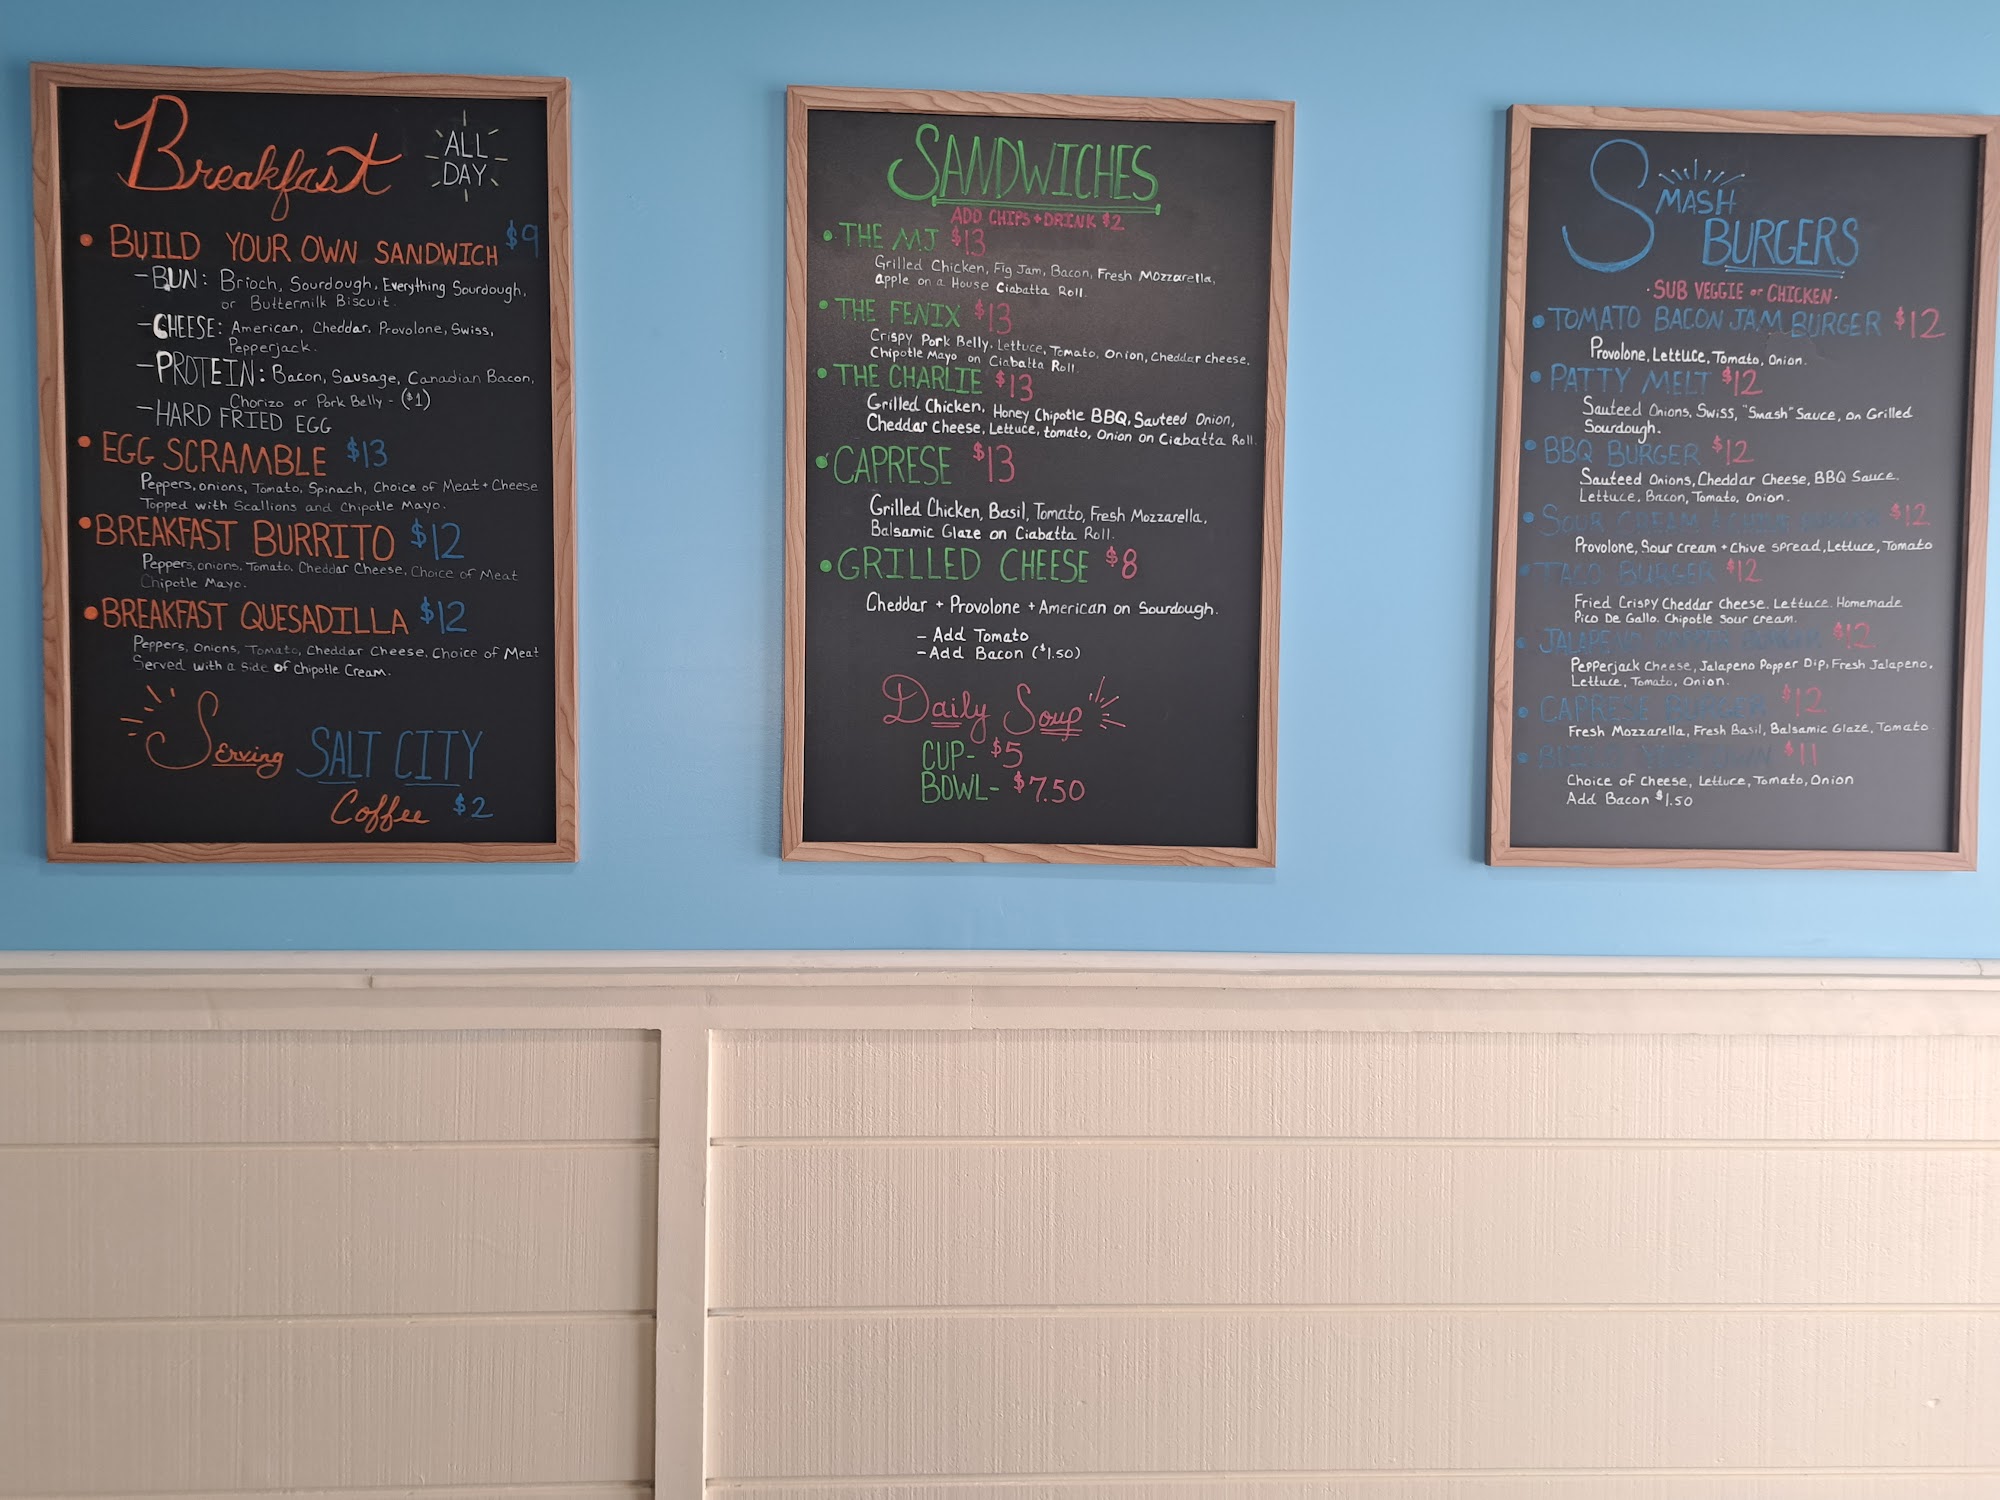 Breakfast
ALL
DAY
• BUILD YOUR OWN SANDWICH $9
- BUN: Brioch, Sourdough, Everything Sourdough,
or Buttermilk Biscuit.
- CHEESE: American, Cheddar, Provolone, Swiss,
Pepperjack.
- PROTEIN: Bacon, Sausage, Canadian Bacon,
Chorizo or Pork Belly - ($1)
- HARD FRIED EGG
• EGG SCRAMBLE $13
Peppers, onions, Tomato, Spinach, Choice of Meat + Cheese
Topped with Scallions and Chipotle Mayo.
• BREAKFAST BURRITO $12
Peppers, onions, Tomato, Cheddar Cheese, Choice of Meat
Chipotle Mayo.
• BREAKFAST QUESADILLA $12
Peppers, Onions, Tomato, Cheddar Cheese, Choice of Meat
Served with a side of Chipotle Cream.
Serving SALT CITY
Coffee $2
SANDWICHES
ADD CHIPS + DRINK $2
• THE MJ $13
Grilled Chicken, Fig Jam, Bacon, Fresh Mozzarella,
apple on a House Ciabatta Roll.
• THE FENIX $13
Crispy Pork Belly, Lettuce, Tomato, Onion, Cheddar Cheese.
Chipotle Mayo on Ciabatta Roll.
• THE CHARLIE $13
Grilled Chicken, Honey Chipotle BBQ, Sauteed Onion,
Cheddar Cheese, Lettuce, tomato, Onion on Ciabatta Roll.
• CAPRESE $13
Grilled Chicken, Basil, Tomato, Fresh Mozzarella,
Balsamic Glaze on Ciabatta Roll.
• GRILLED CHEESE $8
Cheddar + Provolone + American on Sourdough.
- Add Tomato
- Add Bacon ($1.50)
Daily Soup
CUP- $5
BOWL- $7.50
SMASH
BURGERS
· SUB VEGGIE or CHICKEN ·
• TOMATO BACON JAM BURGER $12
Provolone, Lettuce, Tomato, Onion.
• PATTY MELT $12
Sauteed Onions, Swiss, "Smash" Sauce, on Grilled
Sourdough.
• BBQ BURGER $12
Sauteed Onions, Cheddar Cheese, BBQ Sauce.
Lettuce, Bacon, Tomato, Onion.
• SOUR CREAM + CHIVE BURGER $12
Provolone, Sour cream + Chive spread, Lettuce, Tomato
• TACO BURGER $12
Fried Crispy Cheddar Cheese. Lettuce. Homemade
Pico De Gallo. Chipotle Sour cream.
• JALAPENO POPPER BURGER $12
Pepperjack Cheese, Jalapeno Popper Dip, Fresh Jalapeno,
Lettuce, Tomato, Onion.
• CAPRESE BURGER $12
Fresh Mozzarella, Fresh Basil, Balsamic Glaze, Tomato
• BUILD YOUR OWN $11
Choice of Cheese, Lettuce, Tomato, Onion
Add Bacon $1.50